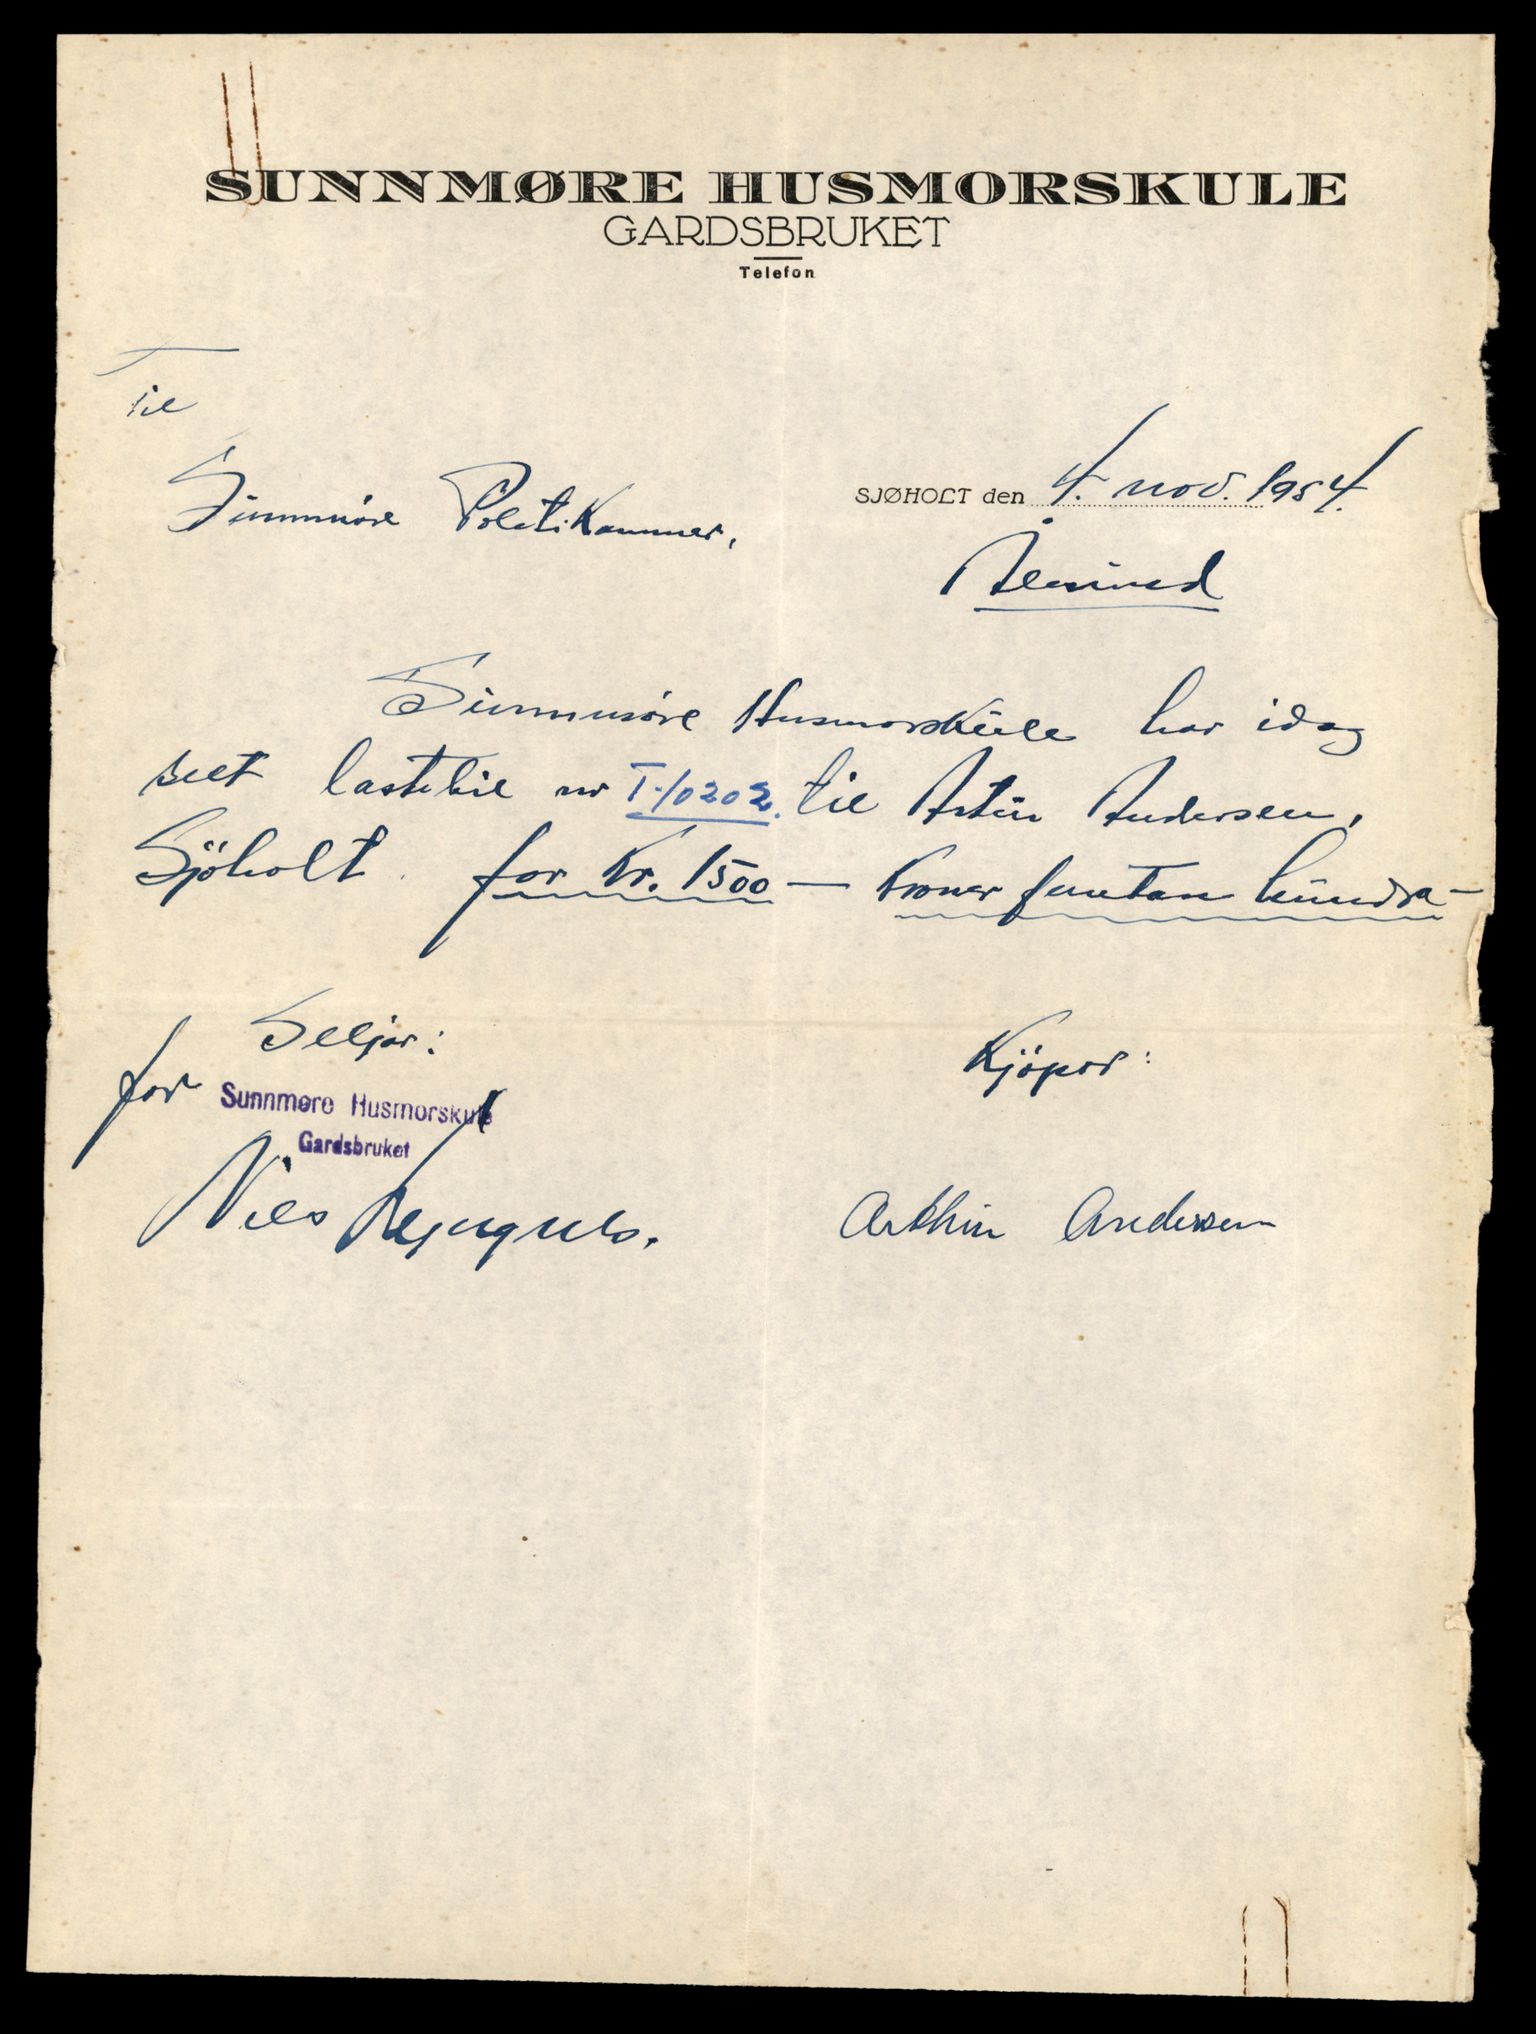 SUNNMØRE HUSMORSKULE
GARDSBRUKET
Telefon
Til
Sunnmöre Politikammer,
SJØHOLT den 4. nov. 1954.
Ålesund
Sunnmöre Husmorskule har idag
selt lastebil nr T-10202. til Artur Andersen,
Sjöholt for Kr. 1500 — Kroner femtan hundra —
Seljar:
Kjöpar:
for Sunnmøre Husmorskule
Gardsbruket
Nils
Arthur Andersen